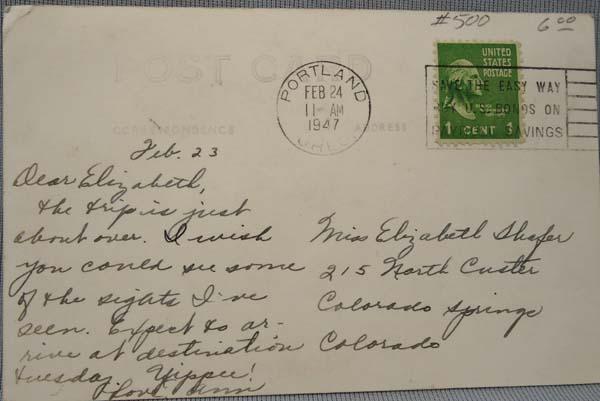 #500
6 00
POST CARD
UNITED
STATES
POSTAGE
1 CENT 1
PORTLAND
FEB 24
11-AM
1947
OREG.
SAVE THE EASY WAY
U.S. BONDS ON
SAVINGS
CORRESPONDENCE
ADDRESS
Feb. 23
Dear Elizabeth,
the trip is just
about over. I wish
you could see some
of the sights I've
seen. Expect to ar-
rive at destination
tuesday. Yippee!
Love Ann
Miss Elizabeth Shafer
215 North Custer
Colorado Springs
Colorado